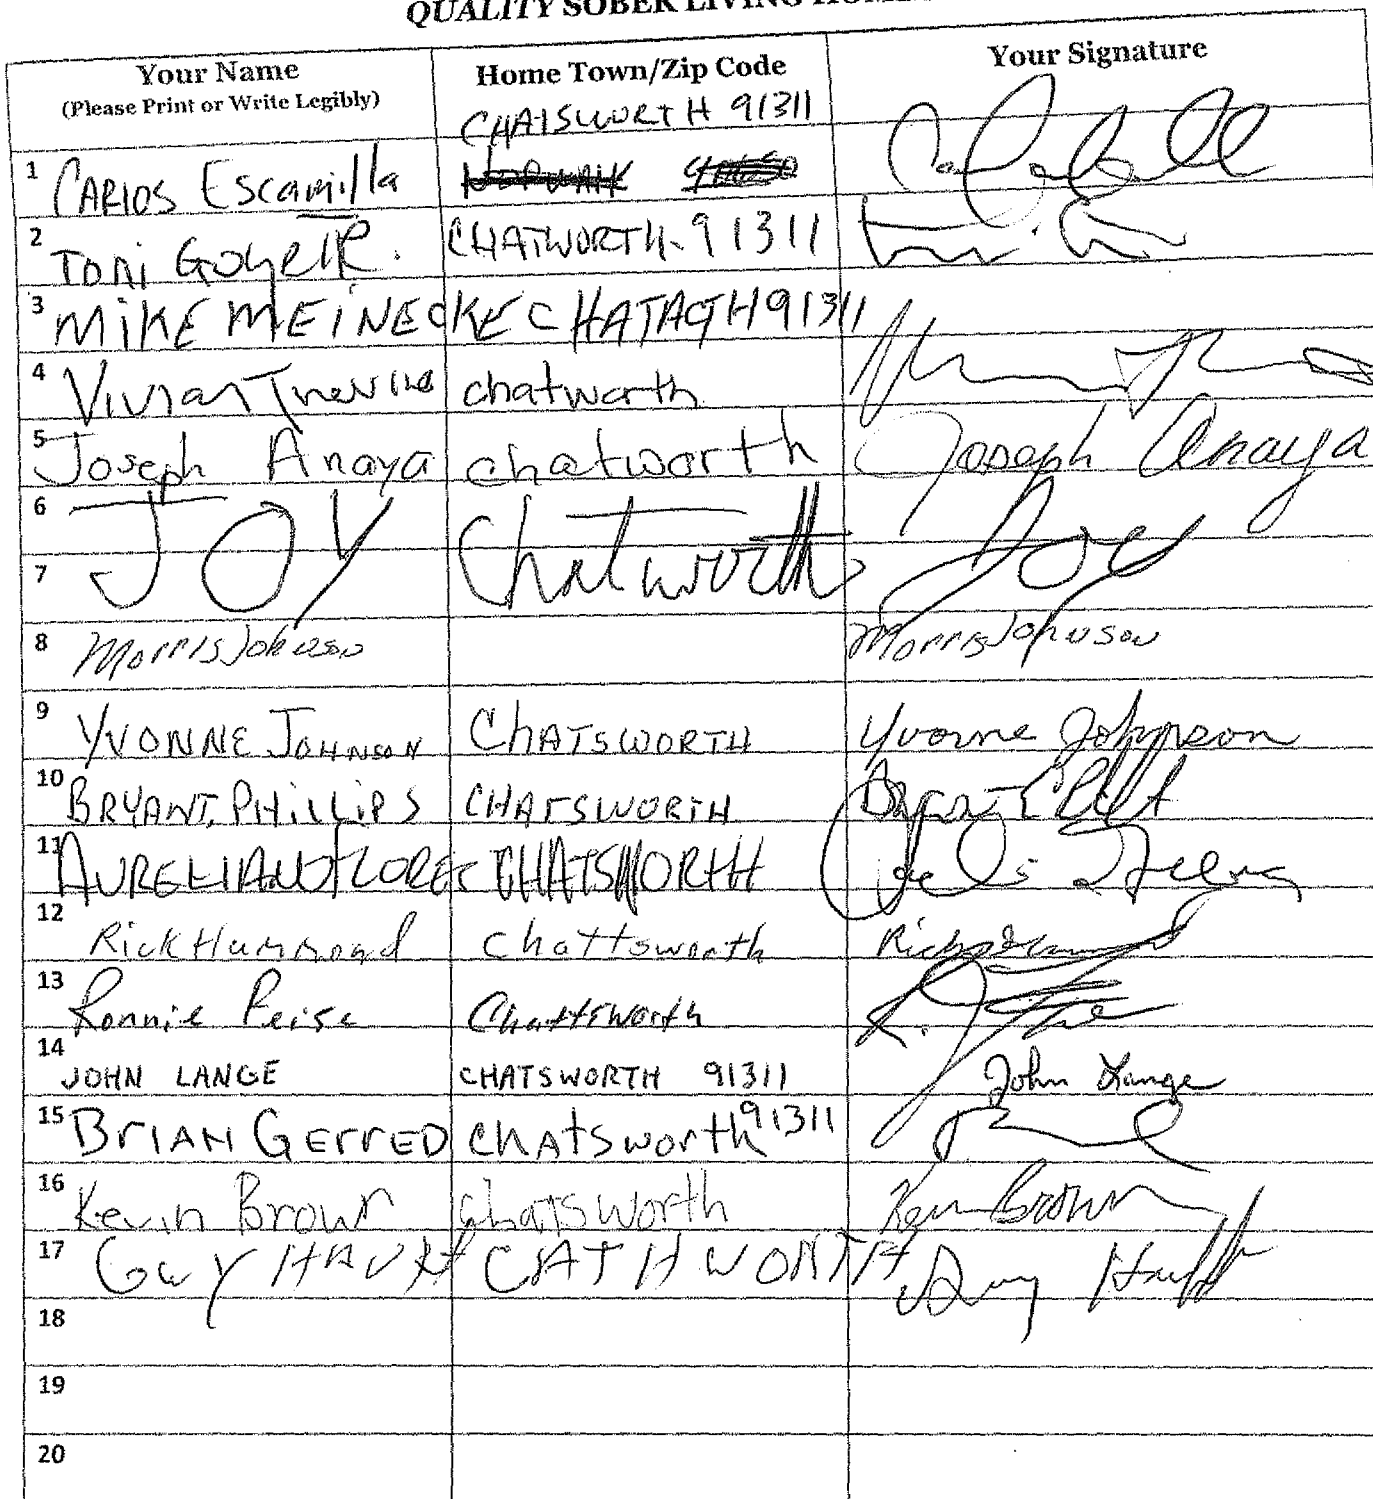 QUALITY SOBER LIVING HOME
Your Name Home Town/Zip Code Your Signature
(Please Print or Write Legibly)
CHATSWORTH 91311
1 CARlOS Escamilla
2 TONi CHATWORTH 91311
3 MiKE MEiNECKE CHATAOTH 91311
4 Vivian chatworth
5 Joseph Anaya chatworth Joseph Anaya
6 JOY Chatworth Joy
7
8 Morris Johnson Morris Johnson
9 YVONNE JOHNSON ChATSWORTH Yvonne Johnson
10 BRYANT. PHiLLIPS CHATSWORTH
11 AURELIANO FLORES CHATSWORTH
12 Rick Hammond Chattsworth
13 Ronnie Chattsworth
14 JOHN LANGE CHATSWORTH 91311 John Lange
15 BrIAN GErrED ChAtsworth 91311
16 Kevin Brown Chatsworth Kevin Brown
17 Guy HAUFF CSATHWONTH Guy Hauff
18
19
20